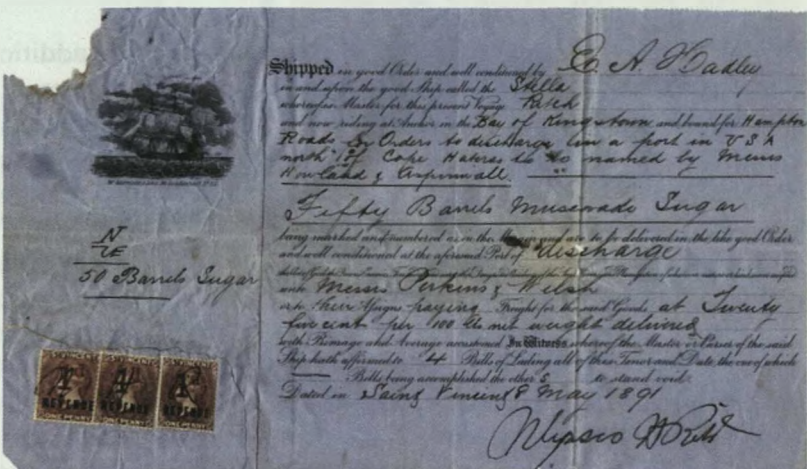 Shipped in good Order and well conditioned by E A Hadley
in and upon the good Ship called the Stella
whereof is Master for this present Voyage Ritch
and now riding at Anchor in the Bay of Kingstown and bound for Hampton
Roads for Orders to discharge in a port in U S A
north of Cape Hateras to be named by Messrs
Howland & Aspinwall
Fifty Barrels Muscovado Sugar
being marked and numbered as in the Margin and are to be delivered in the like good Order
and well conditioned at the aforesaid Port of discharge
unto Messrs Perkins & Welsh
or to their Assigns paying Freight for the said Goods at Twenty
five cents per 100 lbs net weight delivered
with Primage and Average accustomed In Witness whereof the Master or Purser of the said
Ship hath affirmed to 4 Bills of Lading all of this Tenor and Date, the one of which
Bills being accomplished the other 3 to stand void.
Dated in Saint Vincent 8 May 1891
50 Barrels Sugar
REVENUE REVENUE REVENUE
ONE PENNY ONE PENNY ONE PENNY